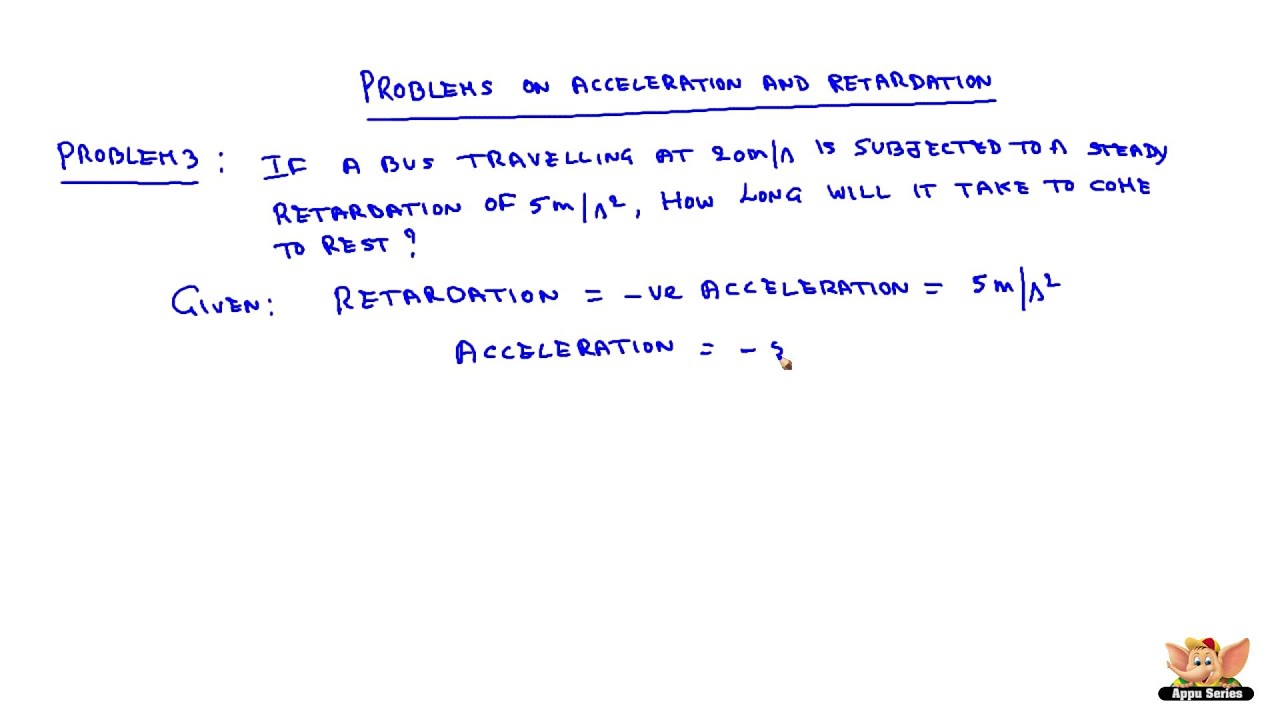 PROBLEMS ON ACCELERATION AND RETARDATION
PROBLEM 3 : IF A BUS TRAVELLING AT 20m/s IS SUBJECTED TO A STEADY
RETARDATION OF 5m/s², HOW LONG WILL IT TAKE TO COME
TO REST?
GIVEN: RETARDATION = -ve ACCELERATION = 5m/s²
ACCELERATION = - 5
Appu Series